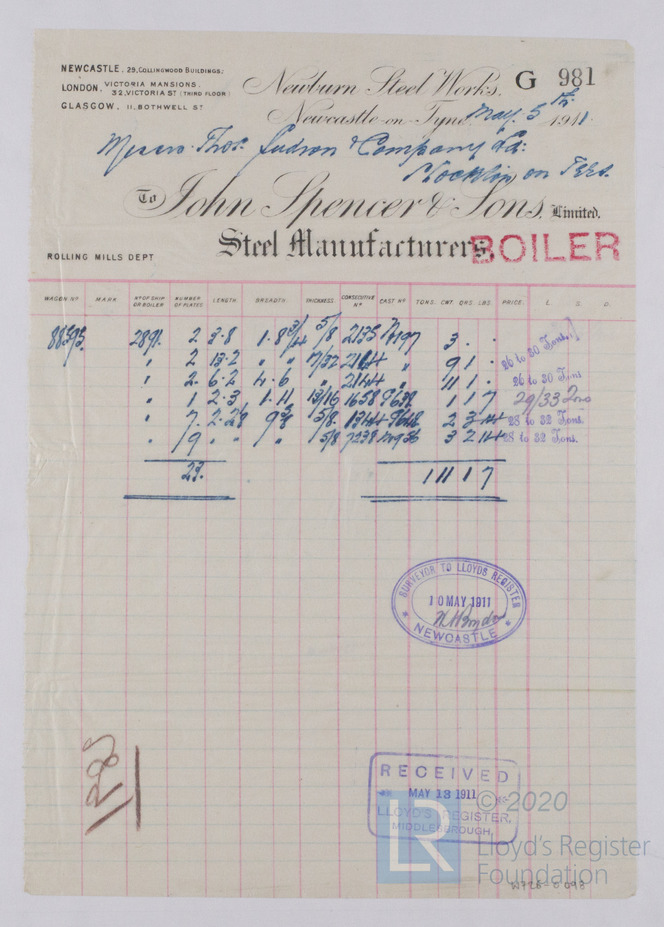 NEWCASTLE, 29, COLLINGWOOD BUILDINGS.
LONDON, VICTORIA MANSIONS,
32, VICTORIA ST (THIRD FLOOR)
GLASGOW, 11, BOTHWELL ST
Newburn Steel Works, G 981
Newcastle-on-Tyne, May 5th 1911
Messrs Thos. & Company Ld:
Stockton on Tees.
To John Spencer & Sons, Limited.
Steel Manufacturers
BOILER
ROLLING MILLS DEPT
WAGON No MARK No OF SHIP OR BOILER NUMBER OF PLATES LENGTH. BREADTH. THICKNESS. CONSECUTIVE No CAST No TONS. CWT. QRS. LBS. PRICE. L. S. D.
2891. 2 3.8 1.8 3/4 5/8 2135 3 . . 26 to 30 Tons.
" 2 13.2 " " 17/32 2164 " 9 1 . 26 to 30 Tons
" 2. 6.2 4.6 " 2144 " 11 1 .
" 1 2.3 1.11 13/16 1658 9638 1 1 7 29/33 Tons
" 7. 5/8 1344 9648 2 3 14 28 to 32 Tons.
" 9 " " 5/8 7238 3 2 14 28 to 32 Tons.
23. 1 11 1 7
SURVEYOR TO LLOYDS REGISTER
10 MAY 1911
NEWCASTLE
RECEIVED
MAY 13 1911
LLOYD'S REGISTER,
MIDDLESBROUGH,
LR © 2020
Lloyd's Register
Foundation